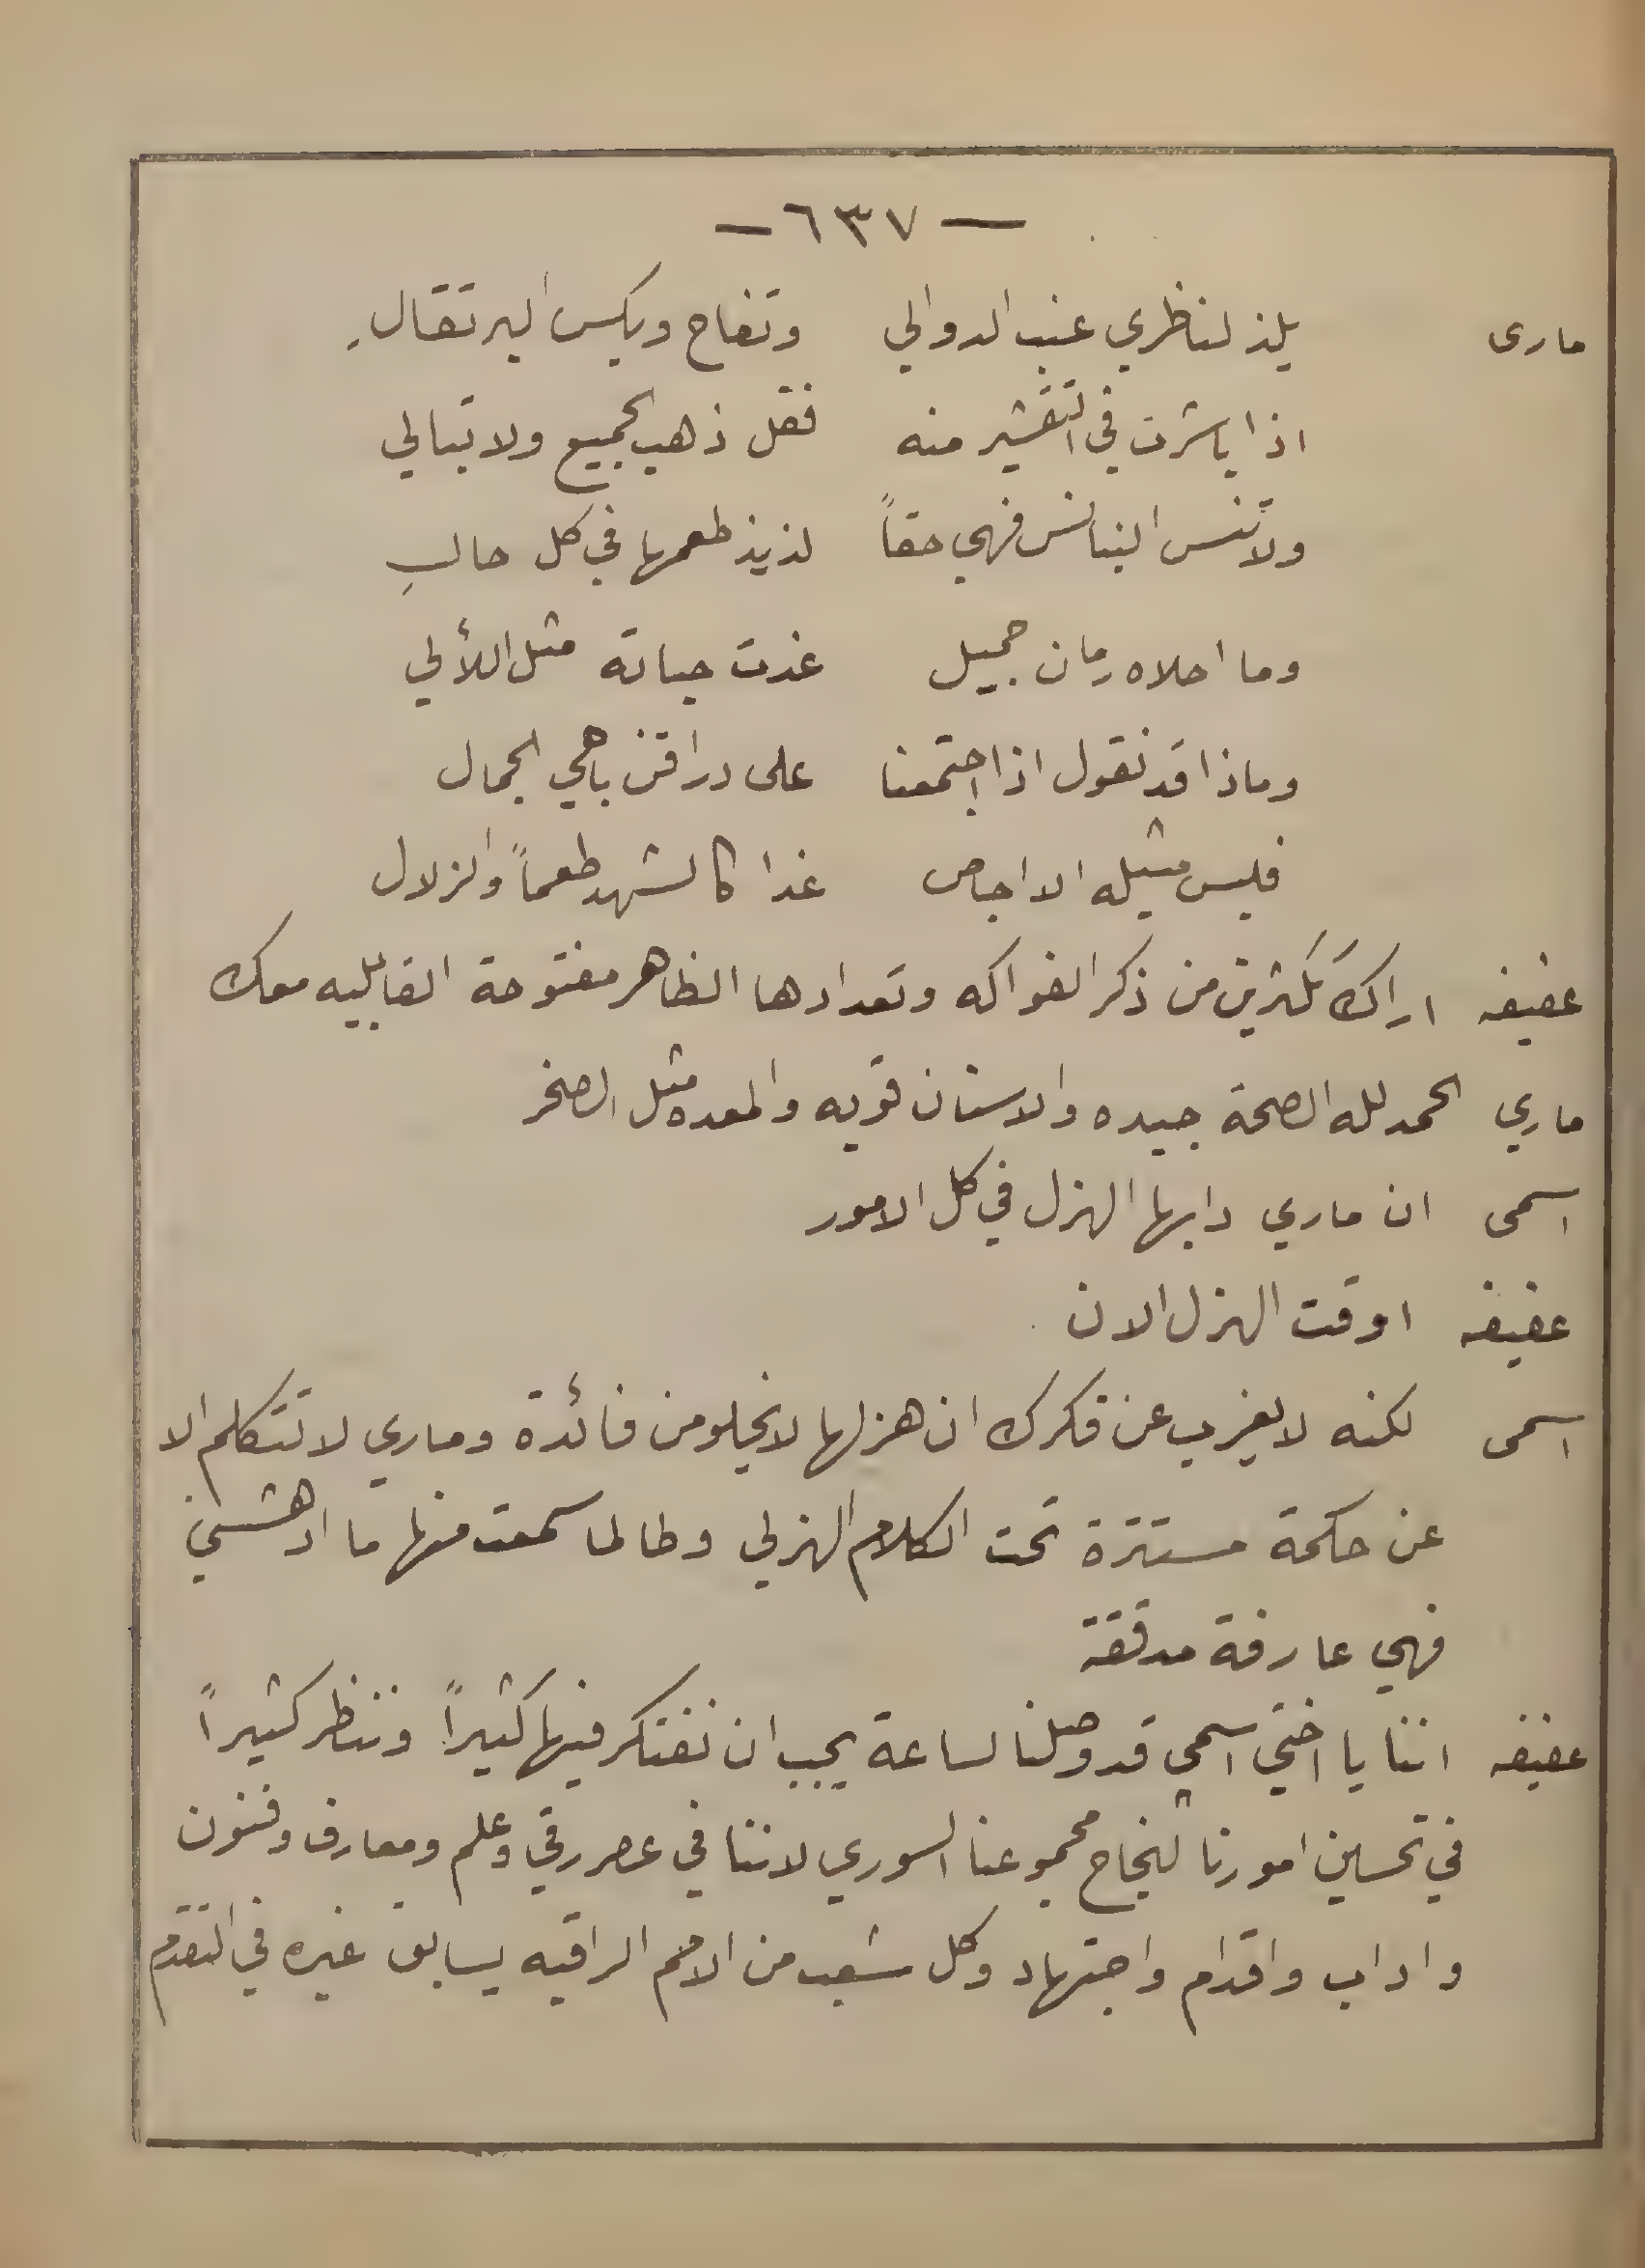 — ٦٣٧ —
ماري يلذ لناظري عنب الدوالي وتفاح وبكس البرتقالِ
اذا باشرت في التقشير منه فقل ذهب الجميع ولا تبالي
ولا تنس البنانس فهي حقاً لذيذ طعمها في كل حالِ
وما احلاه رمان جميل غدت حباته مثل اللألي
وماذا قد نقول اذا اجتمعنا على دراقن باهي الجمال
فليس مثيله الا اجاص غدا كالشهد طعماً والزلال
عفيفه اراكَ تكثرين من ذكر الفواكه وتعدادها الظاهر مفتوحة القابليه معك
ماري الحمد لله الصحة جيده والاسنان قويه والمعده مثل الصخر
اسمى ان ماري دابها الهزل في كل الامور
عفيفه اوقت الهزل الان
اسمى لكنه لا يغرب عن فكرك ان هزلها لا يخلو من فائدة وماري لا تتكلم الا
عن حكمة مستترة تحت الكلام الهزلي وطالما سمعت منها ما ادهشني
فهي عارفة مدققة
عفيفه اننا يا اختي اسمى قد وصلنا لساعة يجب ان نفتكر فيها كثيراً وننظر كثيراً
في تحسين امورنا لنجاح مجموعنا السوري لاننا في عصر رقي وعلم ومعارف وفنون
واداب واقدام واجتهاد وكل شعب من الامم الراقيه يسابق غيره في التقدم